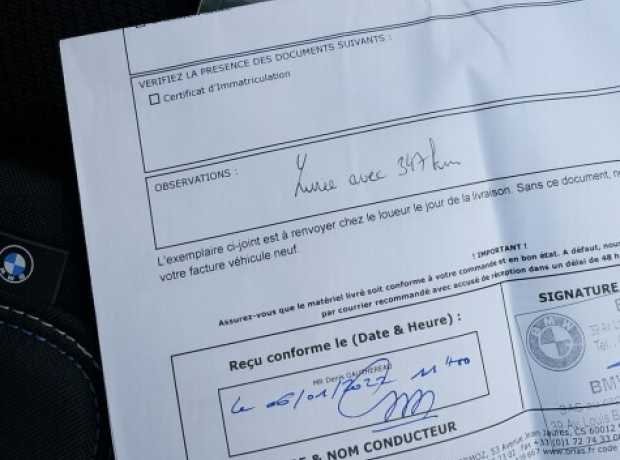 VERIFIEZ LA PRESENCE DES DOCUMENTS SUIVANTS :
Certificat d'Immatriculation
OBSERVATIONS :
Livree avec 347 km
L'exemplaire ci-joint est à renvoyer chez le loueur le jour de la livraison. Sans ce document,
votre facture véhicule neuf.
! IMPORTANT !
Assurez-vous que le matériel livré soit conforme à votre commande et en bon état. A défaut,
par courrier recommandé avec accusé de réception dans un délai de 48
Reçu conforme le (Date & Heure) :
SIGNATURE
MR Denis GAUTHEREAU
le 06/01/2022 11h00
BMW
39 Av Louis
& NOM CONDUCTEUR
53 Avenue Jean Jaures, CS 60012